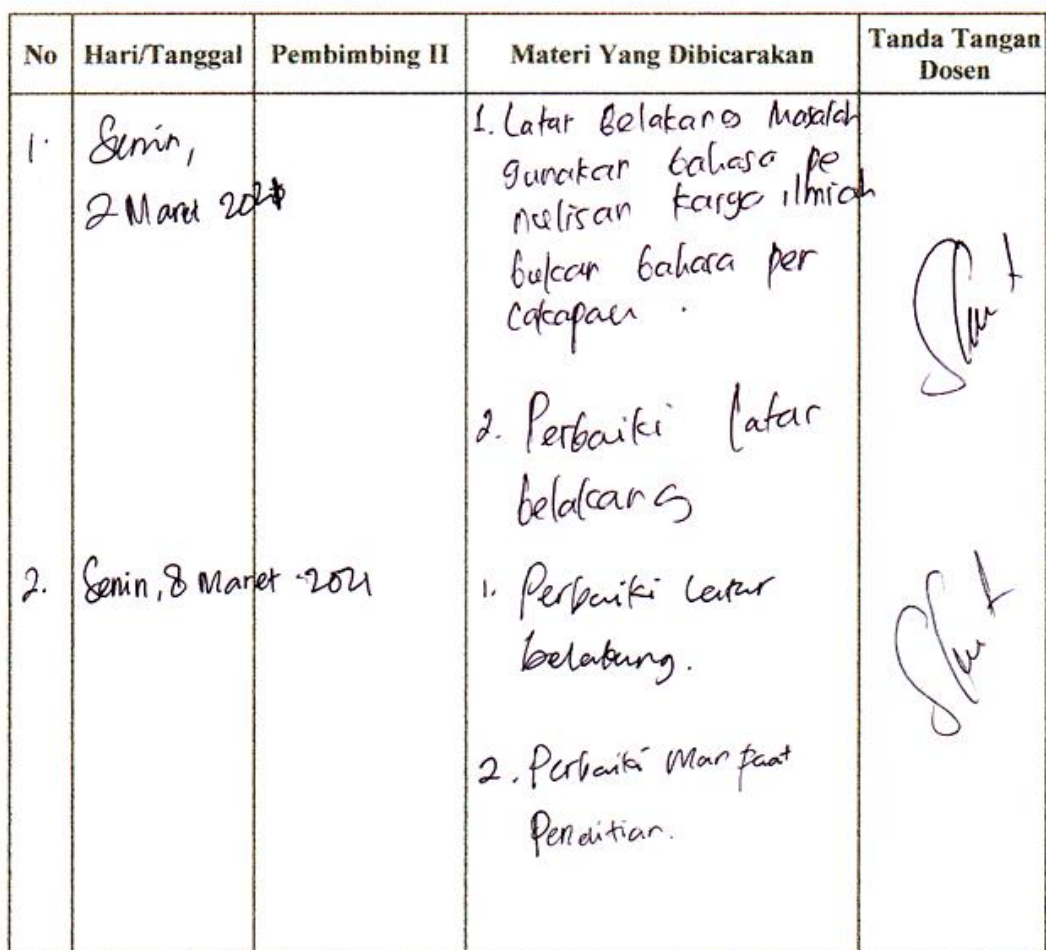 No Hari/Tanggal Pembimbing II Materi Yang Dibicarakan Tanda Tangan Dosen
1. Senin,
2 Maret 2021
1. Latar Belakang Masalah
gunakan bahasa pe
nulisan karya ilmiah
bukan bahasa per
cakapan.
2. Perbaiki latar
belakang
2. Senin, 8 Maret 2021
1. Perbaiki latar
belakang.
2. Perbaiki Manfaat
Penelitian.